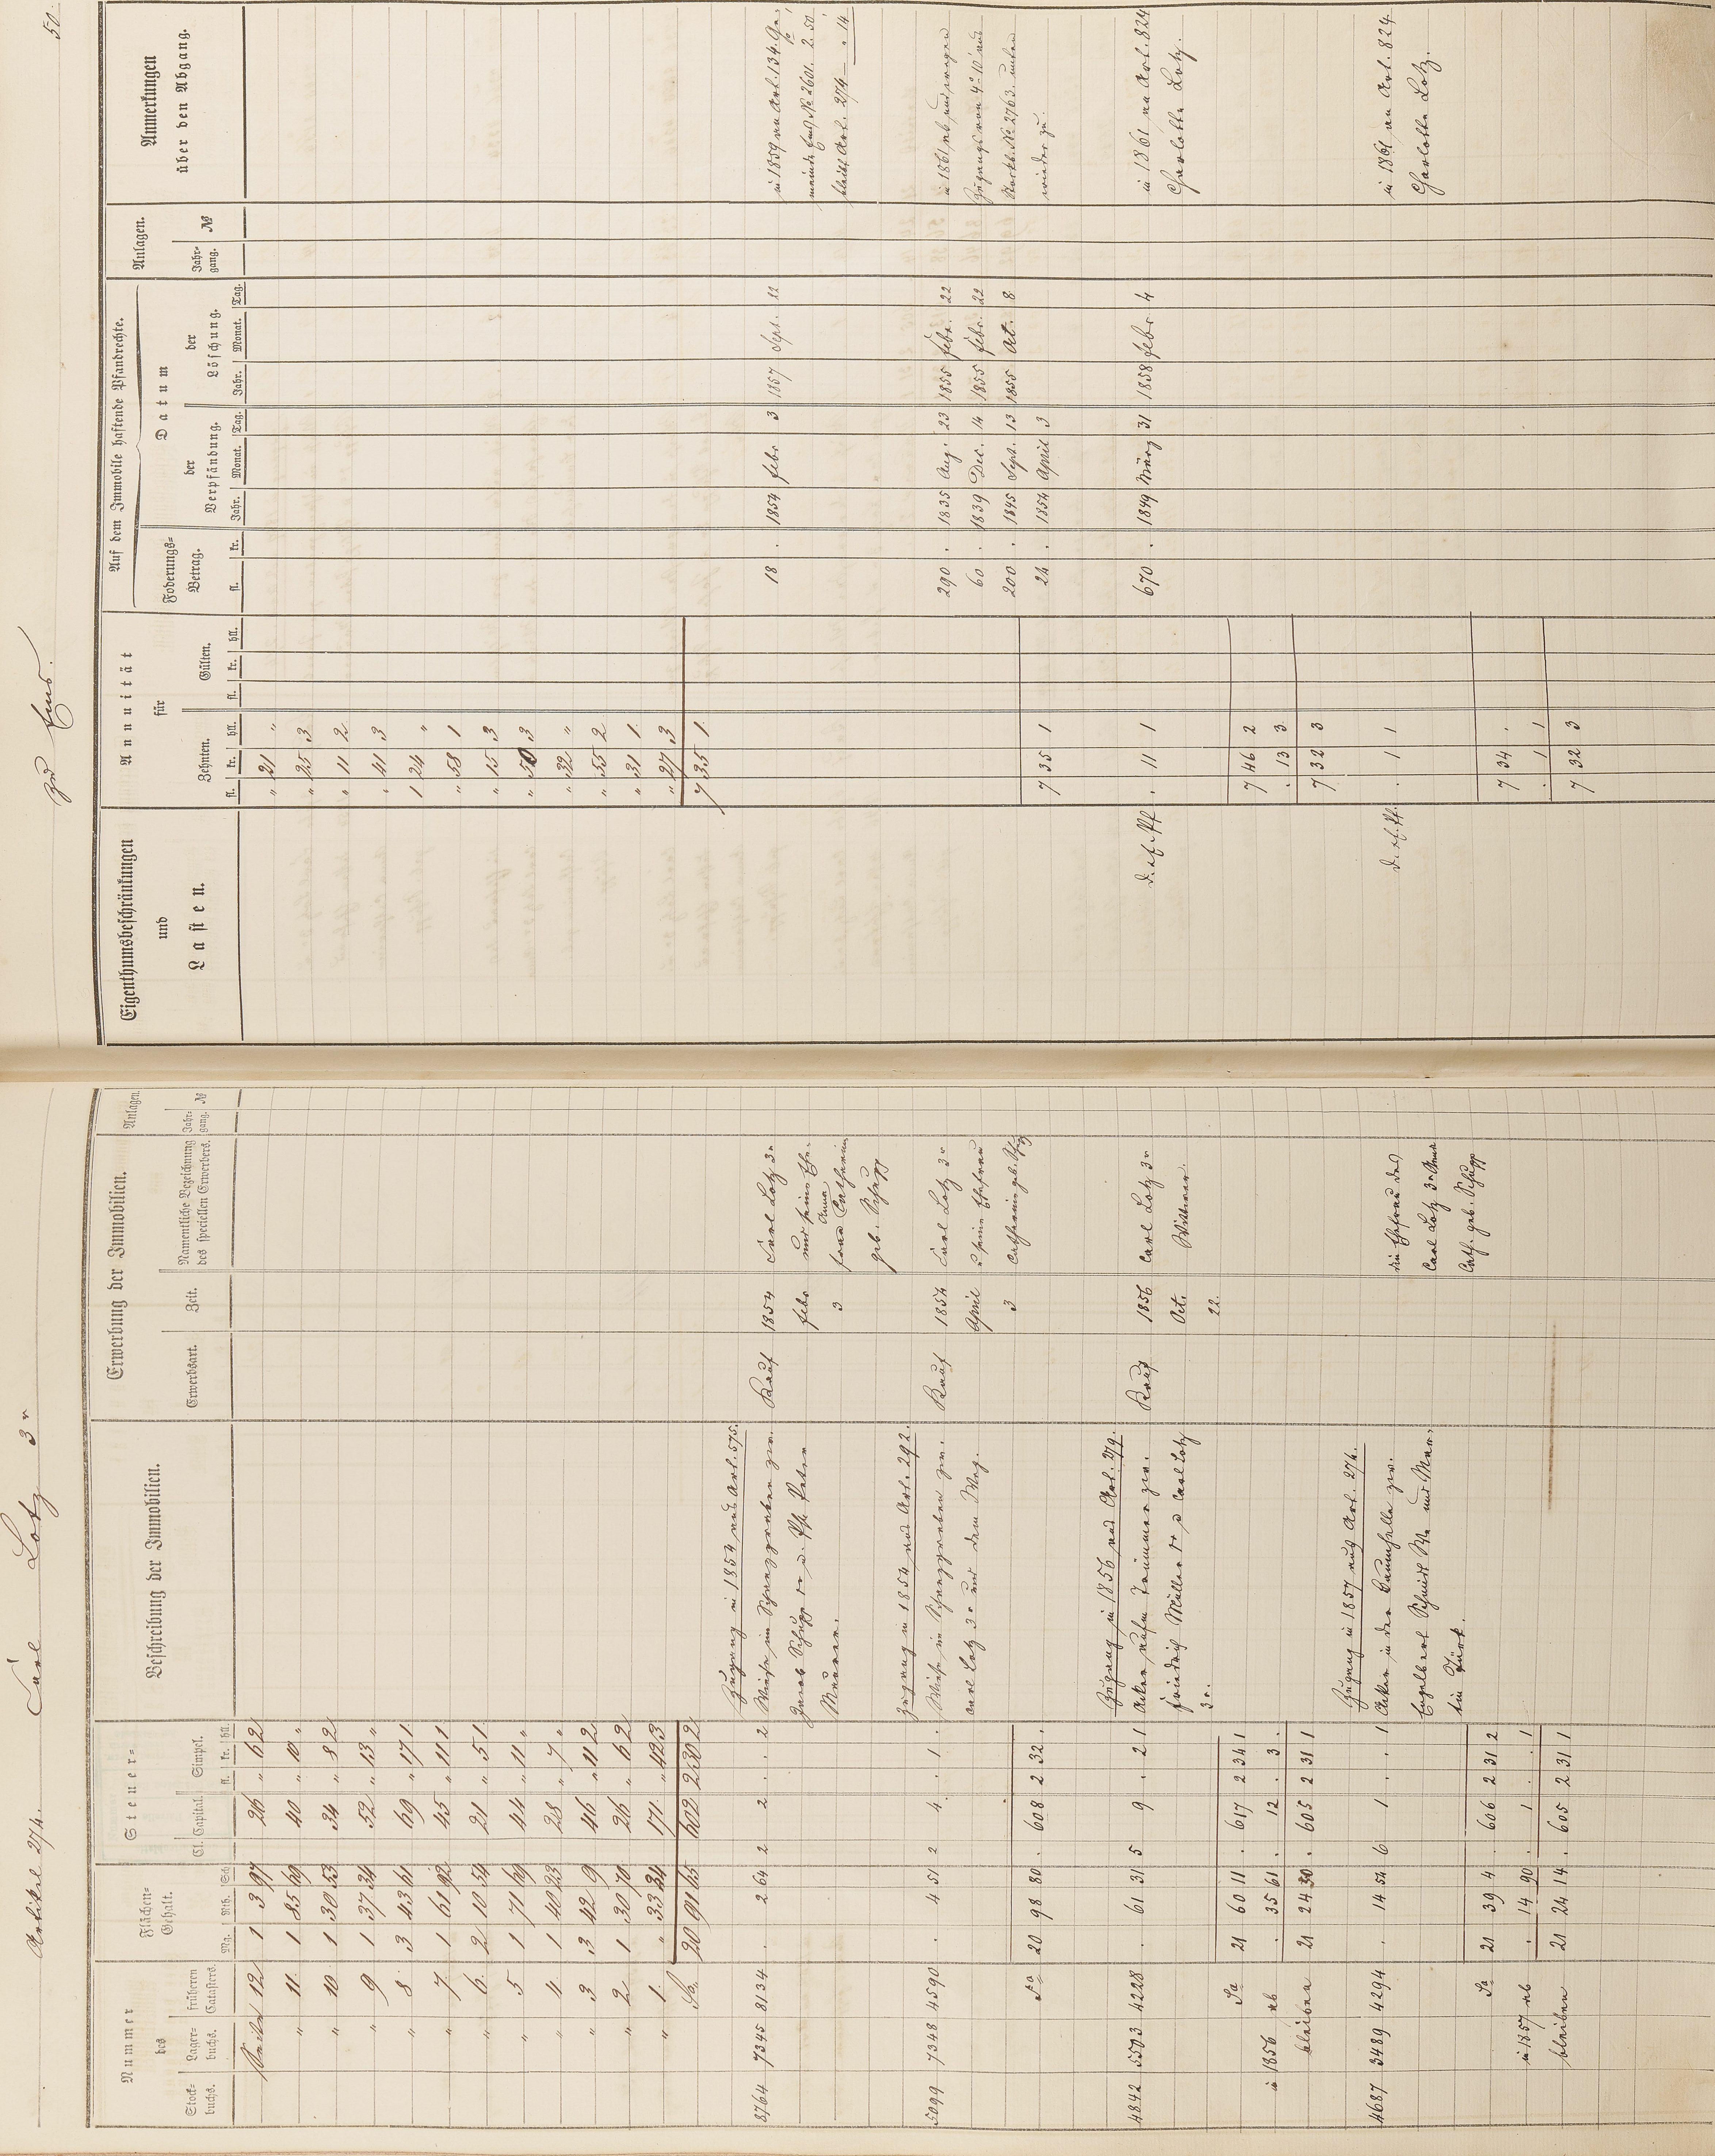 Artikel 274. Carl Lotz 3r
zu Ems.
50.
Nummer des
Stock-buchs.
Lager-buchs.
früheren Catasters.
Flächen-Gehalt.
Mg. Rth. Sch.
Steuer-
Cl. Capital.
Simpel.
fl. kr. hll.
Beschreibung der Immobilien.
Erwerbung der Immobilien.
Erwerbsart.
Zeit.
Namentliche Bezeichnung des speciellen Erwerbers.
Anlagen.
Jahr-gang. №
Eigenthumsbeschränkungen
und
Lasten.
Annuität
für
Zehnten.
fl. kr. hll.
Gülten.
fl. kr. hll.
Auf dem Immobile haftende Pfandrechte.
Foderungs-Betrag.
fl. kr.
Datum
der Verpfändung.
Jahr. Monat. Tag.
der Löschung.
Jahr. Monat. Tag.
Anlagen.
Jahr-gang. №
Anmerkungen
über den Abgang.
Seite 12 1 3 97 26 " 6 2 " 21 "
" 11 1 85 69 40 " 10 " " 25 3
" 10 1 30 53 34 " 8 2 " 11 2
" 9 1 37 34 52 " 13 " " 41 3
" 8 3 43 61 69 " 17 1 1 24 "
" 7 1 61 92 45 " 11 1 " 58 1
" 6 2 10 54 21 " 5 1 " 15 3
" 5 1 71 69 44 " 11 " " 50 3
" 4 1 40 23 28 " 7 " " 32 "
" 3 3 42 9 46 " 11 2 " 55 2
" 2 1 30 70 26 " 6 2 " 31 1
" 1 " 33 34 171 " 42 3 " 27 3
Sa. 20 91 65 602 2 30 2 7 35 1
Zugang in 1854 aus Art. 575.
8764 7345 8134 . 2 64 2 2 . . 2 Wiese im Schanzgraben zw. Kauf 1854 Carl Lotz 3r
Jacob Schupp 1r u. Ph. Peter
Febr
und seine Ehe-
Maurer.
3
frau Anna Catharin
geb. Schupp
18 . 1854 Febr 3 1857 Sept. 22
in 1859 an Art. 134. Ge-
meinde Ems № 2601. 2 50
bleibt Art. 274 — " 14
Zugang in 1854 aus Art. 292.
5099 7348 4590 . 4 51 2 4 . 1 . Wiese im Schanzgraben zw. Kauf 1854 Carl Lotz 3r
Carl Lotz 3r und dem Weg.
April
u seine Ehefrau
3
Catharin geb. Schupp
290 . 1835 Aug. 23 1855 Febr. 22
60 . 1839 Dec. 14 1855 Febr. 22
200 . 1845 Sept. 13 1855 Oct. 8
24 . 1854 April 3
in 1861 ab, und wegen
Zugangs von 4° 10' aus
Stockb. № 2763. unten
wieder zu.
Sa 20 98 80 . 608 2 32 . 7 35 1
Zugang in 1856 aus Art. 279.
4842 5503 4228 . 61 31 5 9 . 2 1 Acker aufm Trümmer zw. Kauf 1856 Carl Lotz 3r
Friedrich Müller 1r u Carl Lotz
Oct.
Wittwer.
3r.
22.
. 11 1 670 . 1849 März 31 1858 Febr 4
in 1861 an Art. 824
Charlotte Lotz.
Sa 21 60 11 . 617 2 34 1 7 46 2
in 1856 ab . 35 61 . 12 . 3 . . 13 3
bleiben 21 24 50 . 605 2 31 1 7 32 3
Zugang in 1857 aus Art. 276.
4687 3489 4294 . 14 54 6 1 . . 1 Acker in der zw.
die Ehefrau des
Engelbert Schmidt We und Mar-
Carl Lotz 3r Anna
tin Türk.
Cath. geb. Schupp
. 1 1
in 1861 an Art. 824
Charlotte Lotz.
Sa 21 39 4 . 606 2 31 2 7 34 .
in 1857 ab . 14 90 . 1 . . 1 . 1 1
bleiben 21 24 14 . 605 2 31 1 7 32 3